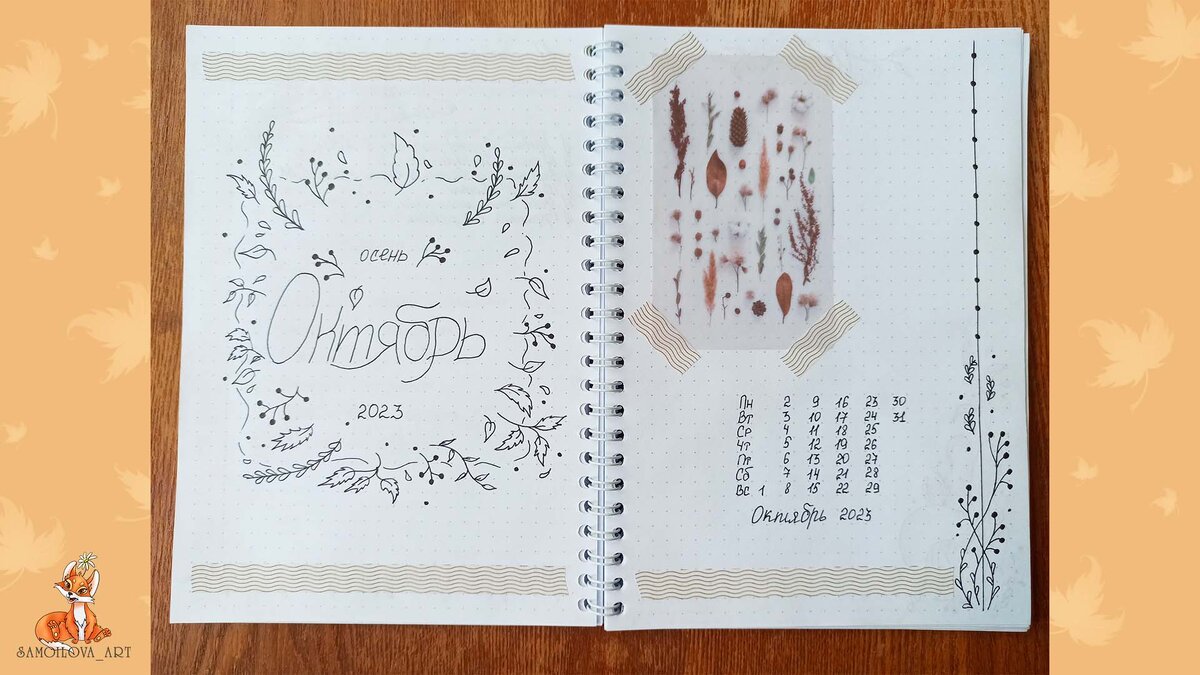 осень
Октябрь
2023
Пн 2 9 16 23 30
Вт 3 10 17 24 31
Ср 4 11 18 25
Чт 5 12 19 26
Пт 6 13 20 27
Сб 7 14 21 28
Вс 1 8 15 22 29
Октябрь 2023
SAMOILOVA_ART